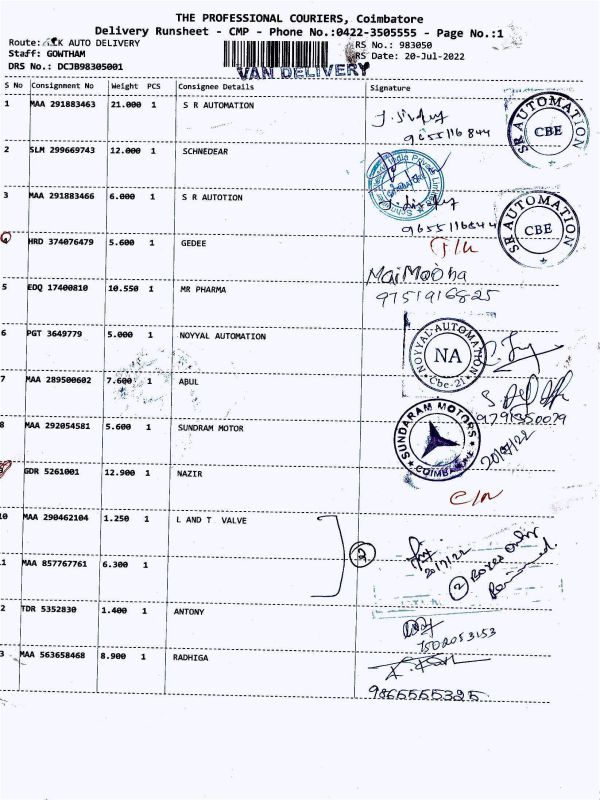 THE PROFESSIONAL COURIERS, Coimbatore
Delivery Runsheet - CMP - Phone No.:0422-3505555 - Page No.:1
Route: AUTO DELIVERY RS No.: 983050
Staff: GOWTHAM RS Date: 20-Jul-2022
DRS No.: DCJB98305001 VAN DELIVERY
S No Consignment No Weight PCS Consignee Details Signature
1 MAA 291883463 21.000 1 S R AUTOMATION
9655116844
SR AUTOMATION CBE
2 SLM 299669743 12.000 1 SCHNEDEAR
3 MAA 291883466 6.000 1 S R AUTOTION
9655116844
SR AUTOMATION CBE
HRD 374076479 5.600 1 GEDEE
5 EDQ 17400810 10.550 1 MR PHARMA
9751916825
6 PGT 3649779 5.000 1 NOYYAL AUTOMATION
NOYYAL AUTOMATION NA Cbe-21
7 MAA 289500602 7.600 1 ABUL
9791350079
8 MAA 292054581 5.600 1 SUNDRAM MOTOR
SUNDARAM MOTORS COIMBATORE
20/7/22
GDR 5261001 12.900 1 NAZIR
10 MAA 290462104 1.250 1 L AND T VALVE
2
20/7/22
2 Boxes only
Received
1 MAA 857767761 6.300 1
2 TDR 5352830 1.400 1 ANTONY
7502053153
3 MAA 563658468 8.900 1 RADHIGA
9865555325